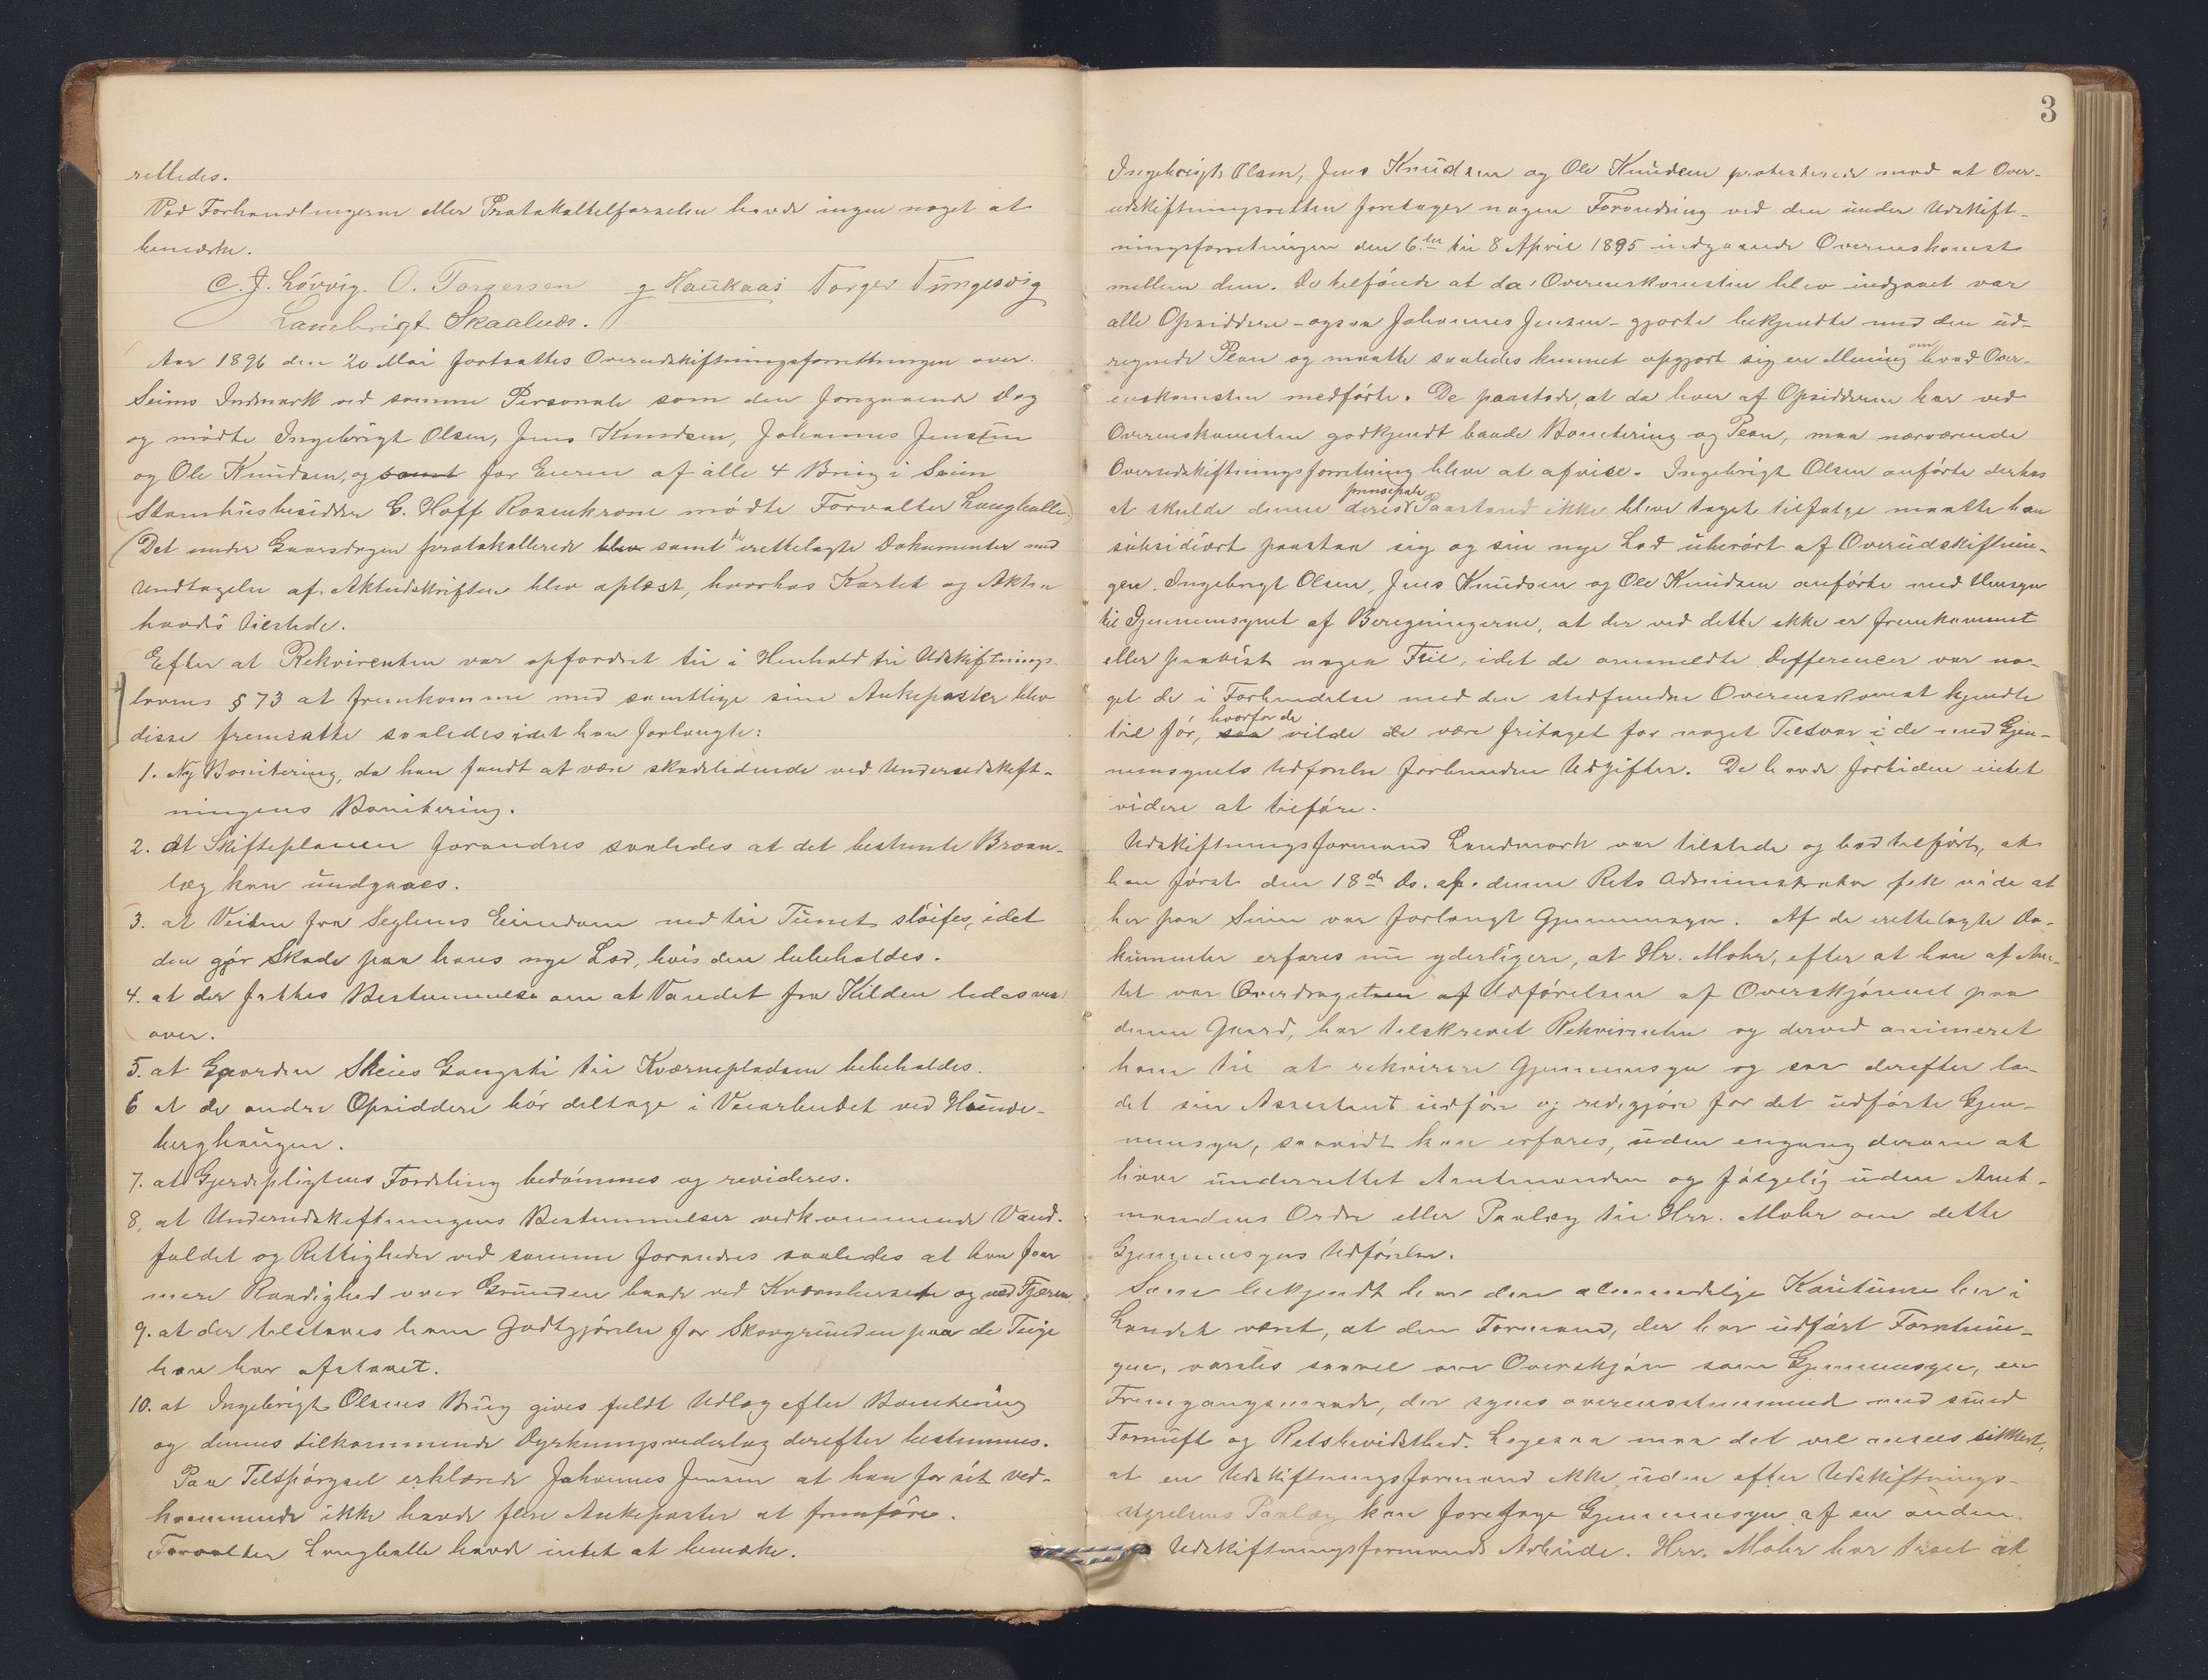 rettedes.
Ved Forhandlingerne eller Protokoltilførselen havde ingen noget at
bemærke.
C. J. Lövvig. O. Torgersen g Haukaas Torger Tungesvig
Lambrigt Skaaluær.
Aar 1896 den 20 Mai fortsattes Overudskiftningsforretningen over
Seims Indmark ved samme Personale som den foregaaende Dag
og mødte Ingebrigt Olsen, Jens Knudsen, Johannes Jensen
og Ole Knudsen, og samt for Eieren af alle 4 Brug i Seim
Stamhusbesidder E. Hoff Rosenkrone mødte Forvalter Langballe.
Det under Gaarsdagen protokollerede blev samt de irettelagte Dokumenter med
Undtagelse af Aktudskriften blev oplæst, hvorhos Kartet og Akten
havdes tilstede.
Efter at Rekvirenten var opfordret til i Henhold til Udskiftnings-
lovens § 73 at fremkomme med samtlige sine Ankeposter blev
disse fremsatte saaledes idet han forlangte:
1. Ny Bonitering, da han fandt at være skadelidende ved Underudskift-
ningens Bonitering.
2. At Skifteplanen forandres saaledes at det bestemte Broan-
læg kan undgaaes.
3. at Veiten fra Seglens Eiendom ned til Tunet sløifes, idet
den gjør Skade paa hans nye Lod, hvis den bibeholdes.
4. at der fattes Bestemmelse om at Vandet fra Kilden ledes
over.
5. at Gaarden Skeies Gangsti til Kværnepladsen bibeholdes.
6 at de andre Opsiddere bør deltage i Veiarbeidet ved Hunde-
berghaugen.
7. at Gjerdepligtens Fordeling bedømmes og revideres.
8, at Underudskiftningens Bestemmelser vedkommende Vand-
faldet og Rettigheder ved samme forandres saaledes at han faar
mere Raadighed over Grunden baade ved Kværnhusene og ved Fjæren.
9. at der tilstaaes ham Godtgjørelse for Skovgrunden paa de Teige
han har afstaaet.
10. at Ingebrigt Olsens Brug gives fuldt Udlæg efter Bonitering
og dennes tilkommende Dyrkningsvederlag derefter bestemmes.
Paa Tilspørgsel erklærede Johannes Jensen at han for sit Ved-
kommende ikke havde flere Ankeposter at fremføre.
Forvalter Langballe havde intet at bemærke.
3
Ingebrigt Olsen, Jens Knudsen og Ole Knudsen protesterede mod at Over-
udskiftningsretten foretager nogen Forandring ved den under Udskift-
ningsforretningen den 6.te til 8 April 1895 indgaaede Overenskomst
mellem dem. De tilføiede at da Overenskomsten blev indgaaet var
alle Opsiddere - ogsaa Johannes Jensen - gjorte bekjendte med den ud-
regnede Plan og maatte saaledes kunnet opgjort sig en Mening om hvad Over-
enskomsten medførte. De paastode, at da hver af Opsidderne har ved
Overenskomsten godkjendt baade Bonitering og Plan, maa nærværende
Overudskiftningsforretning blive at afvise. Ingebrigt Olsen anførte derhos
at skulde denne deres principale Paastand ikke blive taget tilfølge maatte han
subsidiært paastaa sig og sin nye Lod uberørt af Overudskiftnin-
gen. Ingebrigt Olsen, Jens Knudsen og Ole Knudsen anførte med Hensyn
til Gjennemsynet af Beregningerne, at der ved dette ikke er fremkommet
eller paavist nogen Feil, idet de anmeldte Differencer var no-
get de i Forbindelse med den stedfundne Overenskomst kjendte
til før, saa hvorfor de vilde de være fritaget for noget Tilsvar i de med Gjen-
nemsynets Udførelse forbundne Udgifter. De havde fortiden intet
videre at tilføre.
Udskiftningsformand Landmark var tilstede og bad tilført, at
han først den 18de ds. af denne Rets Administrator fik vide at
her paa Seim var forlangt Gjennemsyn. Af de irettelagte Do-
kumenter erfares nu yderligere, at Hr. Mohr, efter at han af Am-
tet var Overdraget Udførelsen af Overskjønnet paa
denne Gaard, har tilskrevet Rekvirenten og derved animeret
ham til at rekvirere Gjennemsyn og saa derefter la-
det sin Assistent udføre og redegjøre for det udførte Gjen-
nemsyn, saavidt kan erfares, uden engang derom at
have underrettet Amtmanden og følgelig uden Amt-
mandens Ordre eller Paalæg til Hrr. Mohr om dette
Gjennemsyns Udførelse.
Som bekjendt har den almindelige Kautume her i
Landet været, at den Formand, der har udført Forretnin-
gen, varsles saavel om Overskjøn som Gjennemsyn, en
Fremgangsmaade, der synes overensstemmende med sund
Fornuft og Retsbevidsthed. Ligesaa maa det vel ansees sikkert,
at en Udskiftningsformand ikke uden efter Udskiftnings-
styrelsens Paalæg kan foretage Gjennemsyn af en anden
Udskiftningsformands Arbeide. Hrr. Mohr har troet at